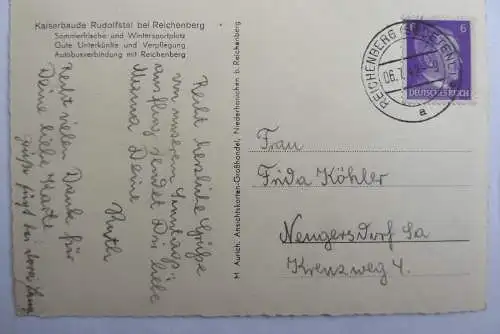 Kaiserbaude Rudolfstal bei Reichenberg
Sommerfrische und Wintersportplatz
Gute Unterkünfte und Verpflegung
Autobusverbindung mit Reichenberg
Recht herzliche Grüße
von unserem Sonntags-
ausflug sendet Dir liebe
Mama Deine
Ruth
Recht vielen Dank für
Deine liebe Karte
M. Aurich, Ansichtskarten-Großhandel, Niederhanichen b. Reichenberg
REICHENBERG
06.7
a
6
DEUTSCHES REICH
Frau
Frida Köhler
Neugersdorf Sa
Kreuzweg 4.